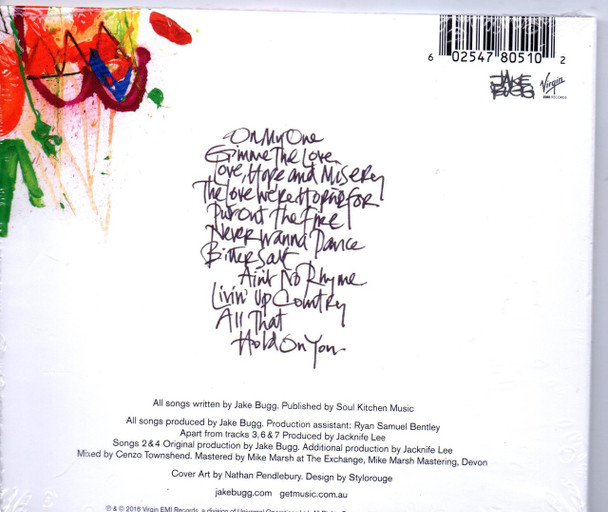 6 02547 80510 2
JAKE BUGG
Virgin
EMI RECORDS
On My One
Gimme The Love
Love, Hope and Misery
The Love We're Hoping For
Put Out The Fire
Never Wanna Dance
Bitter Salt
Ain't No Rhyme
Livin' Up Country
All That
Hold On You
All songs written by Jake Bugg. Published by Soul Kitchen Music
All songs produced by Jake Bugg. Production assistant: Ryan Samuel Bentley
Apart from tracks 3, 6 & 7 Produced by Jacknife Lee
Songs 2 & 4 Original production by Jake Bugg. Additional production by Jacknife Lee
Mixed by Cenzo Townshend. Mastered by Mike Marsh at The Exchange, Mike Marsh Mastering, Devon
Cover Art by Nathan Pendlebury. Design by Stylorouge
jakebugg.com getmusic.com.au
℗ & © 2016 Virgin EMI Records, a division of Universal Operations Ltd. All